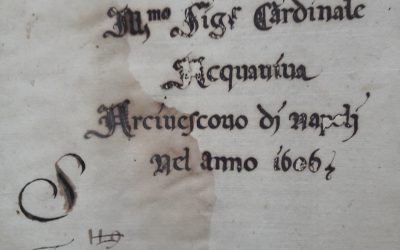 Ill.mo Sigr Cardinale
Acquaviva
Arciuescouo di Napoli
Nel anno 1606